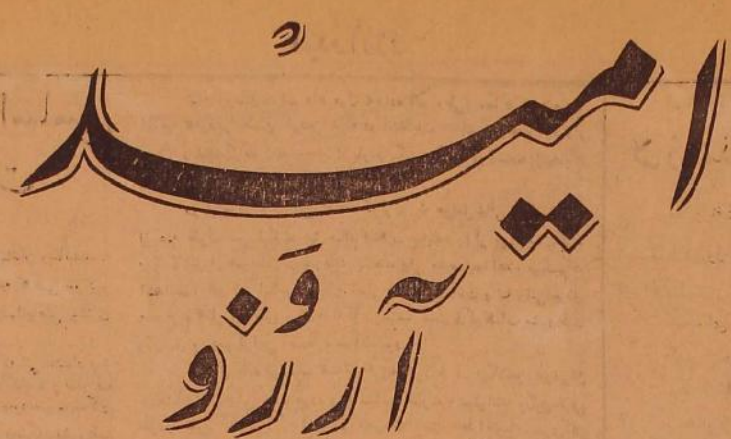 امید
وَ
آرزو